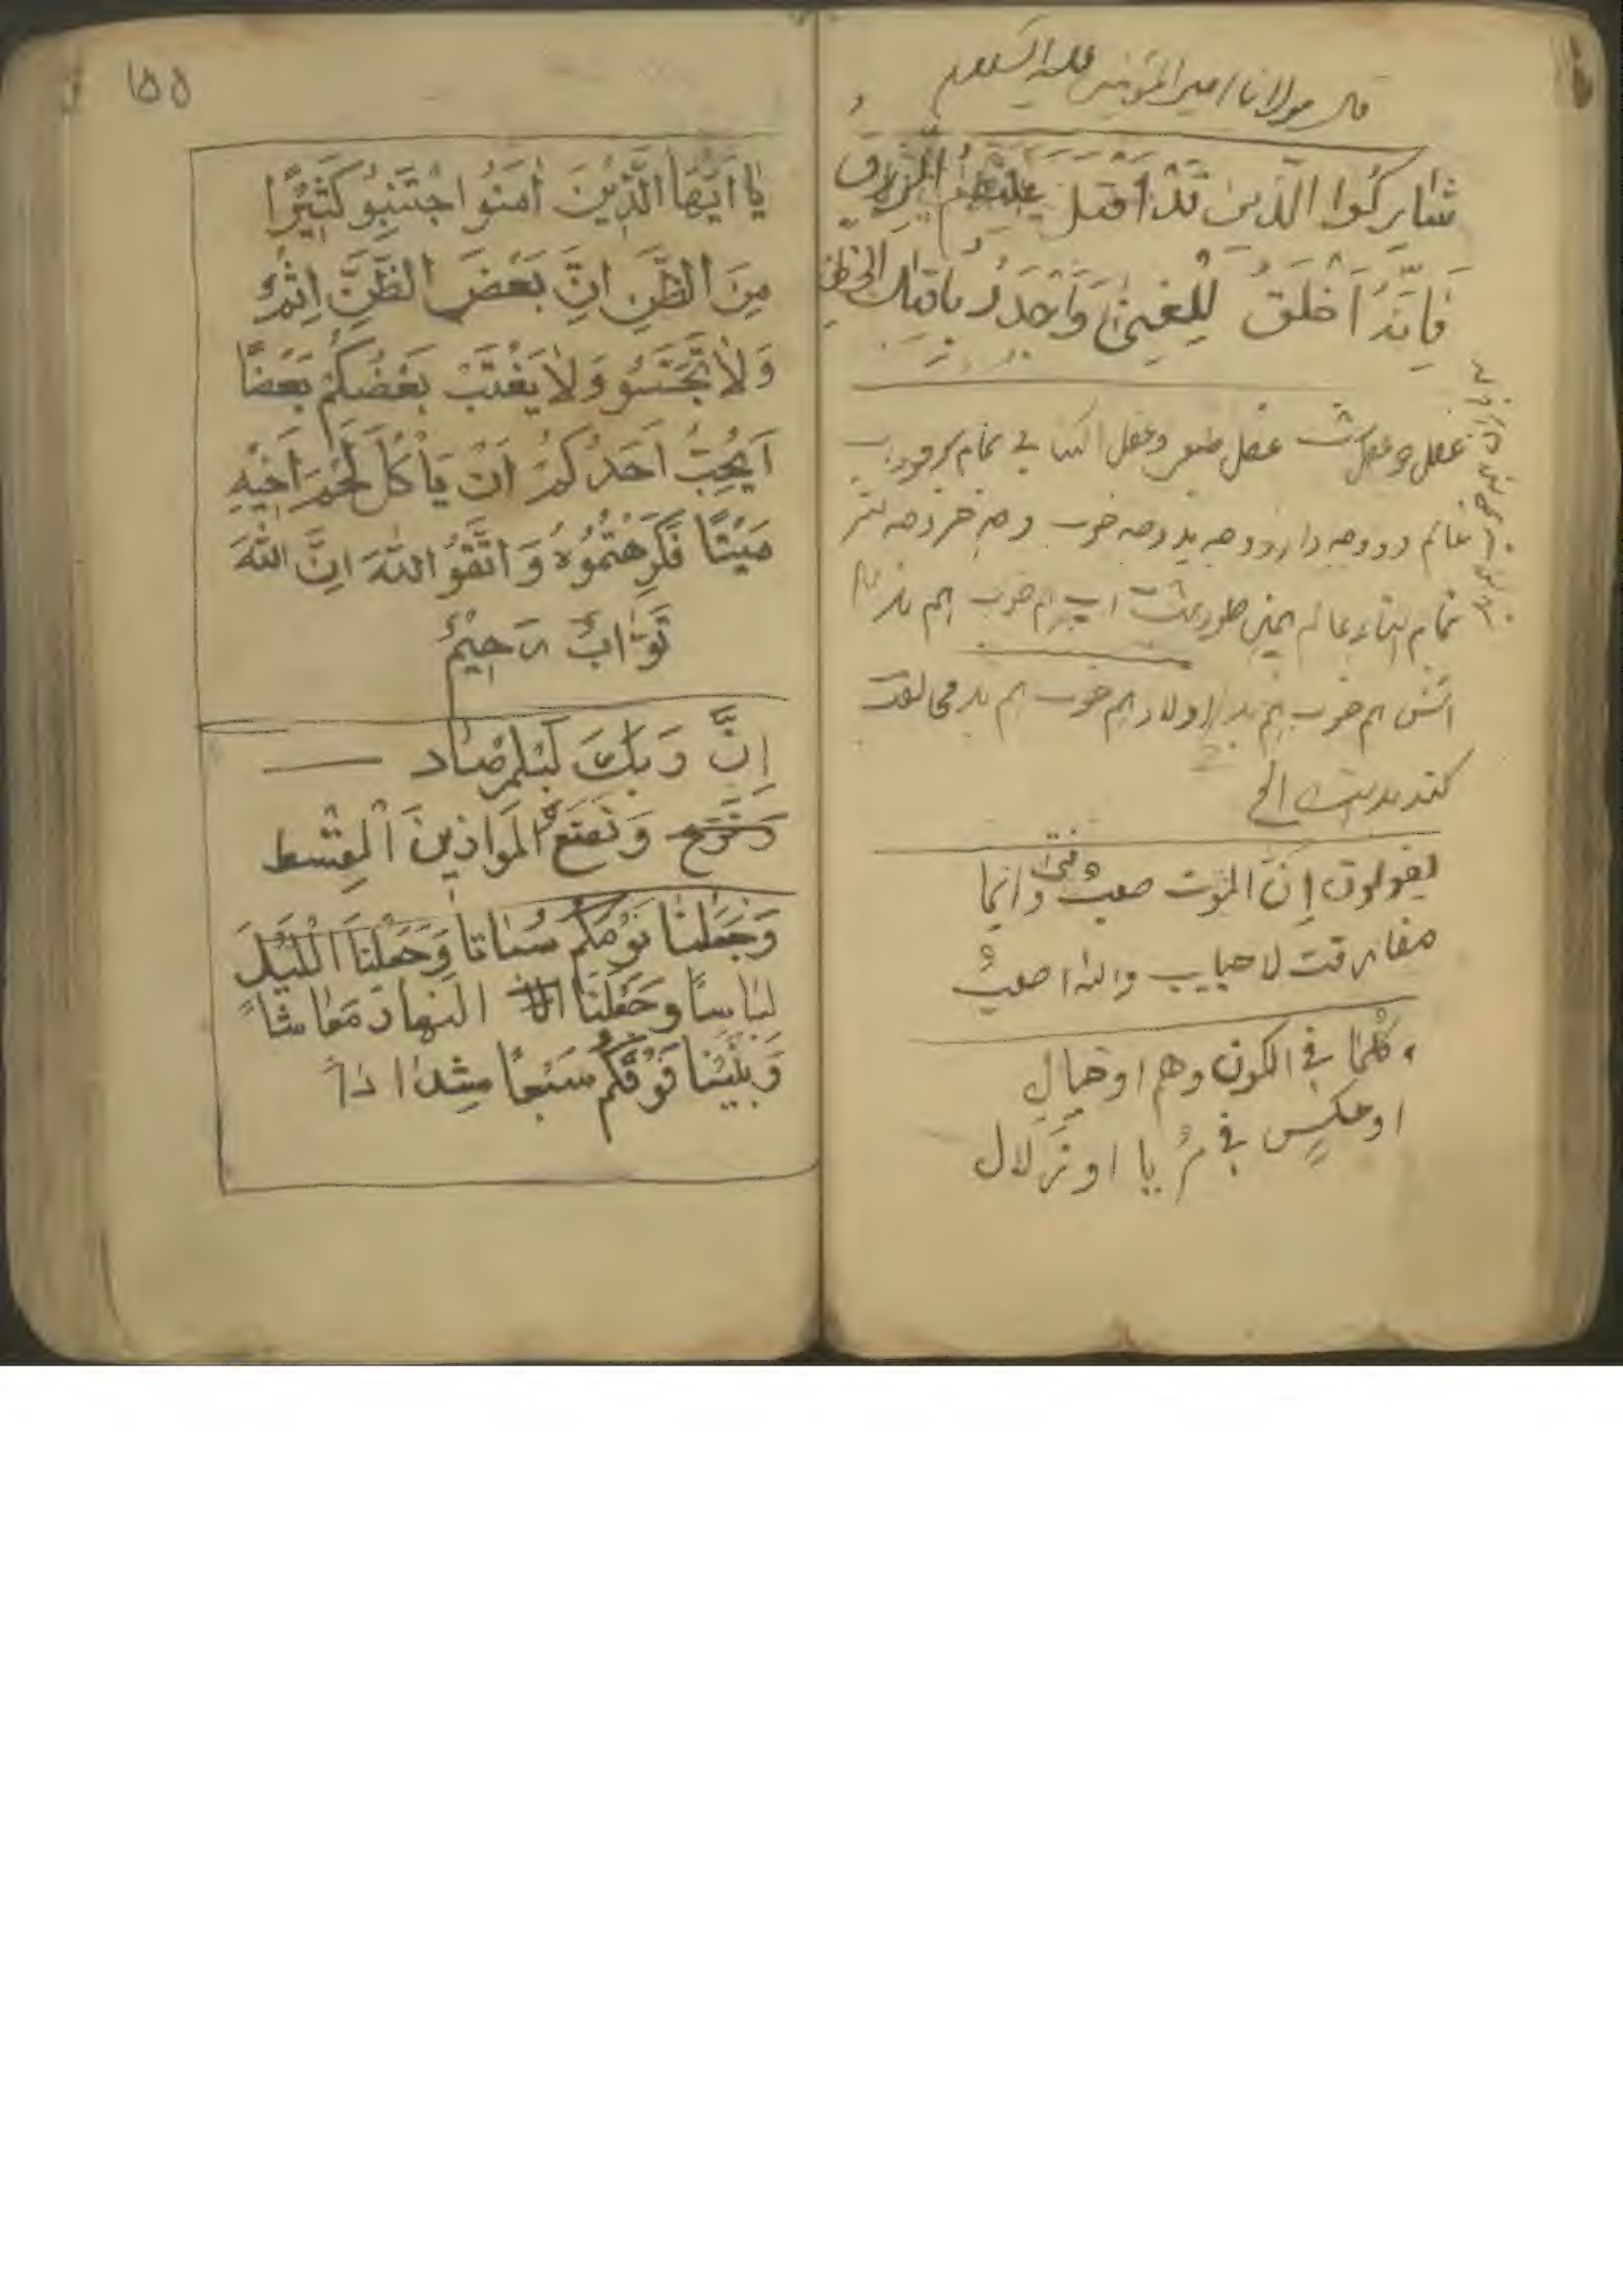 قال مولانا امیرالمؤمنین علیه السلام
شٰارِكُوا الّذین قَدْ اَقبَلَ عَلَیْهِمُ الْرِزقُ
فَاِنَّهُ اَخْلَقُ لِلْغِنیٰ وَاَجْدَرُ باقبٰال الحَظِ
عقل دو عقل است عقل طبعی و عقل اکتسابی تمام
عالم دو وجه دارد وجه بد وجه خوب وجه خیر وجه شر
تمام اشیاء عالم همین طور است آب هم خوب هم بد
آتش هم خوب هم بد اولاد هم خوب هم بد مخالفت
کند بد است الخ
یقولون اِنَّ الموت صعبٌ وانما
مفارقت لاحبایب والله اصعبٌ
كُلما في الكون وهم او خیالٍ
او عكسٍ في مُرٰیا او زَلال
١٥٥
یٰا اَیُّهَا الَّذِیْنَ اٰمَنُوا اجْتَنِبُو كَثِیْرًا
مِنَ الظَّنِ اِنَّ بَعْضَ الظَّنِّ اِثْمٌ
وَلاٰ تَجَسَّسُو وَلاٰ یَغْتَبْ بَعْضُكُمْ بَعْضًا
اَیُحِبُّ اَحَدُكُمْ اَنْ یَاْكُلَ لَحْمَ اَخِیْهِ
مَیْتًا فَكَرِهْتُمُوُهُ وَاتَّقُوُ اللهَ اِنَّ اللهَ
تَوّٰابٌ رَحِیْمٌ
اِنَّ رَبَّكَ لَبِلمِرْصٰاد
وَنَضَعُ الْمَوٰازِینَ الْقِسْط
وَجَعَلْنٰا نَوْمَكُمْ سُبٰاتا وَجَعَلْنَا الْلَیْلَ
لِبٰاسًا وَجَعَلْنَا النهار مَعٰاشاً
وَبَنَیْنٰا فَوْقَكُم سَبْعًا شِدٰادًا